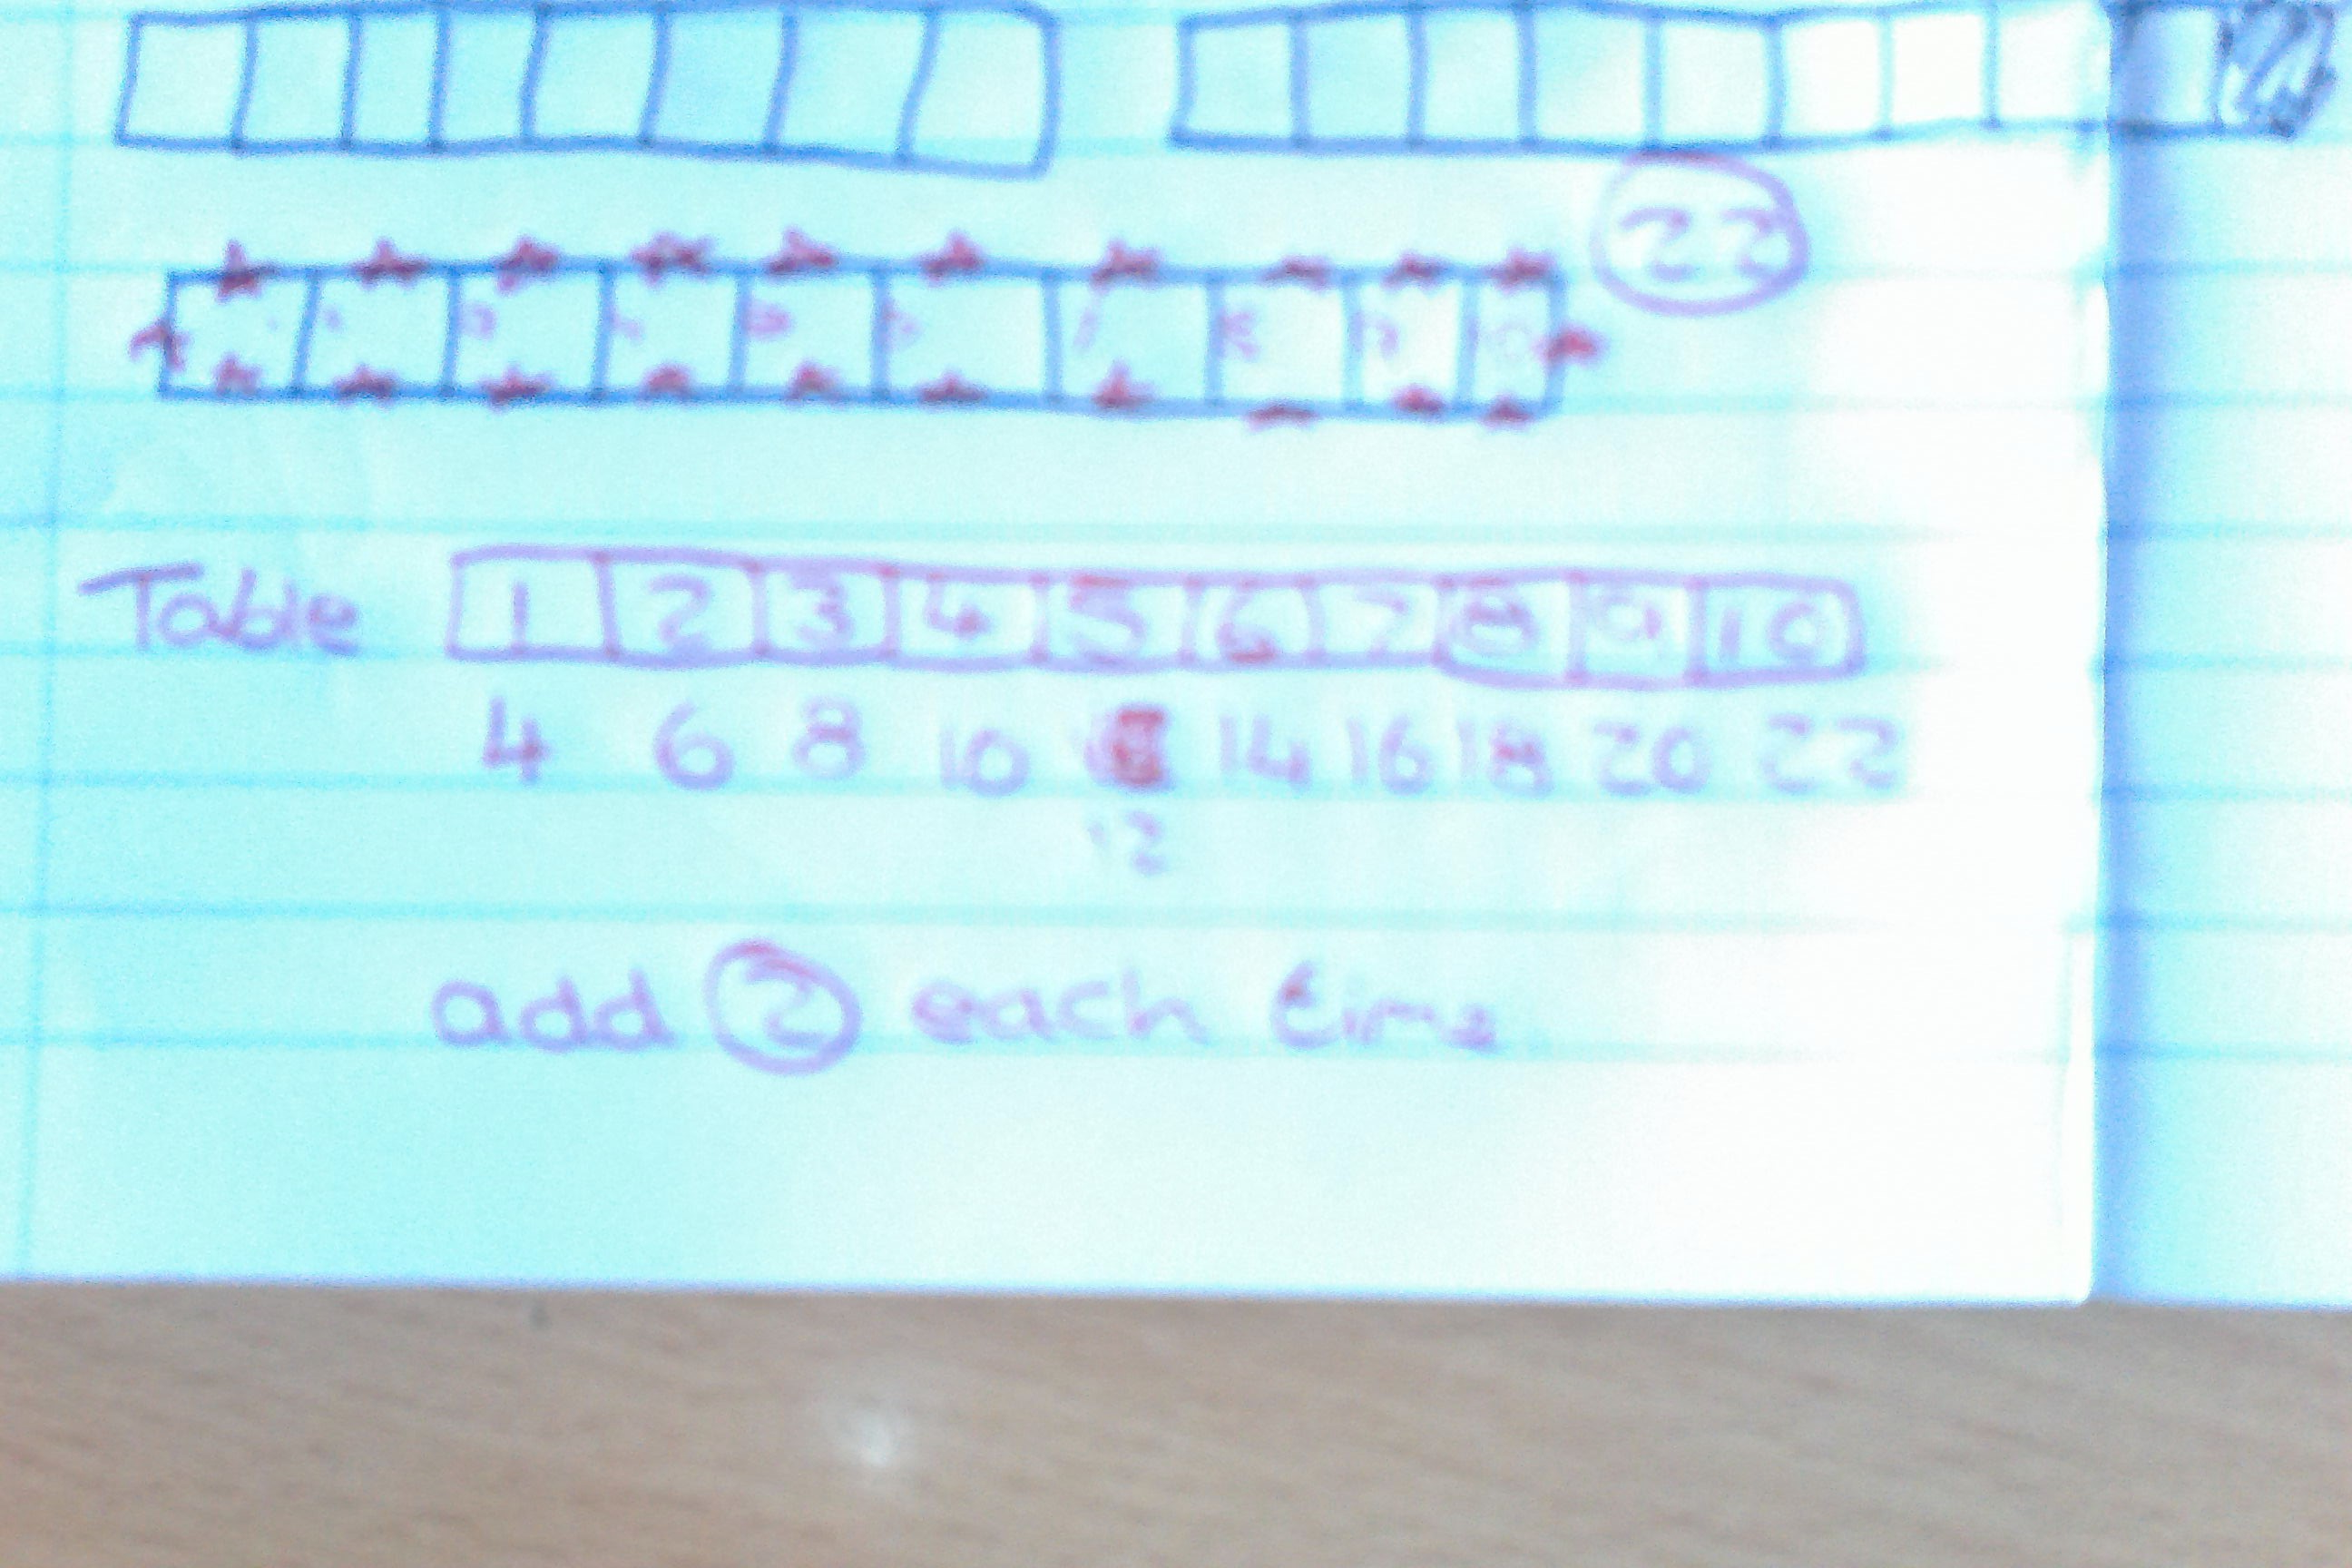 22
Table 1 2 3 4 5 6 7 8 9 10
4 6 8 10 14 16 18 20 22
12
add 2 each time